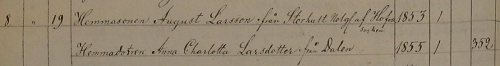 8 " 19 Hemmasonen August Larsson från Storhult Nolg. af Hofva 1853 1
socken
Hemmadottren Anna Charlotta Larsdotter från Dalen 1855 1 352